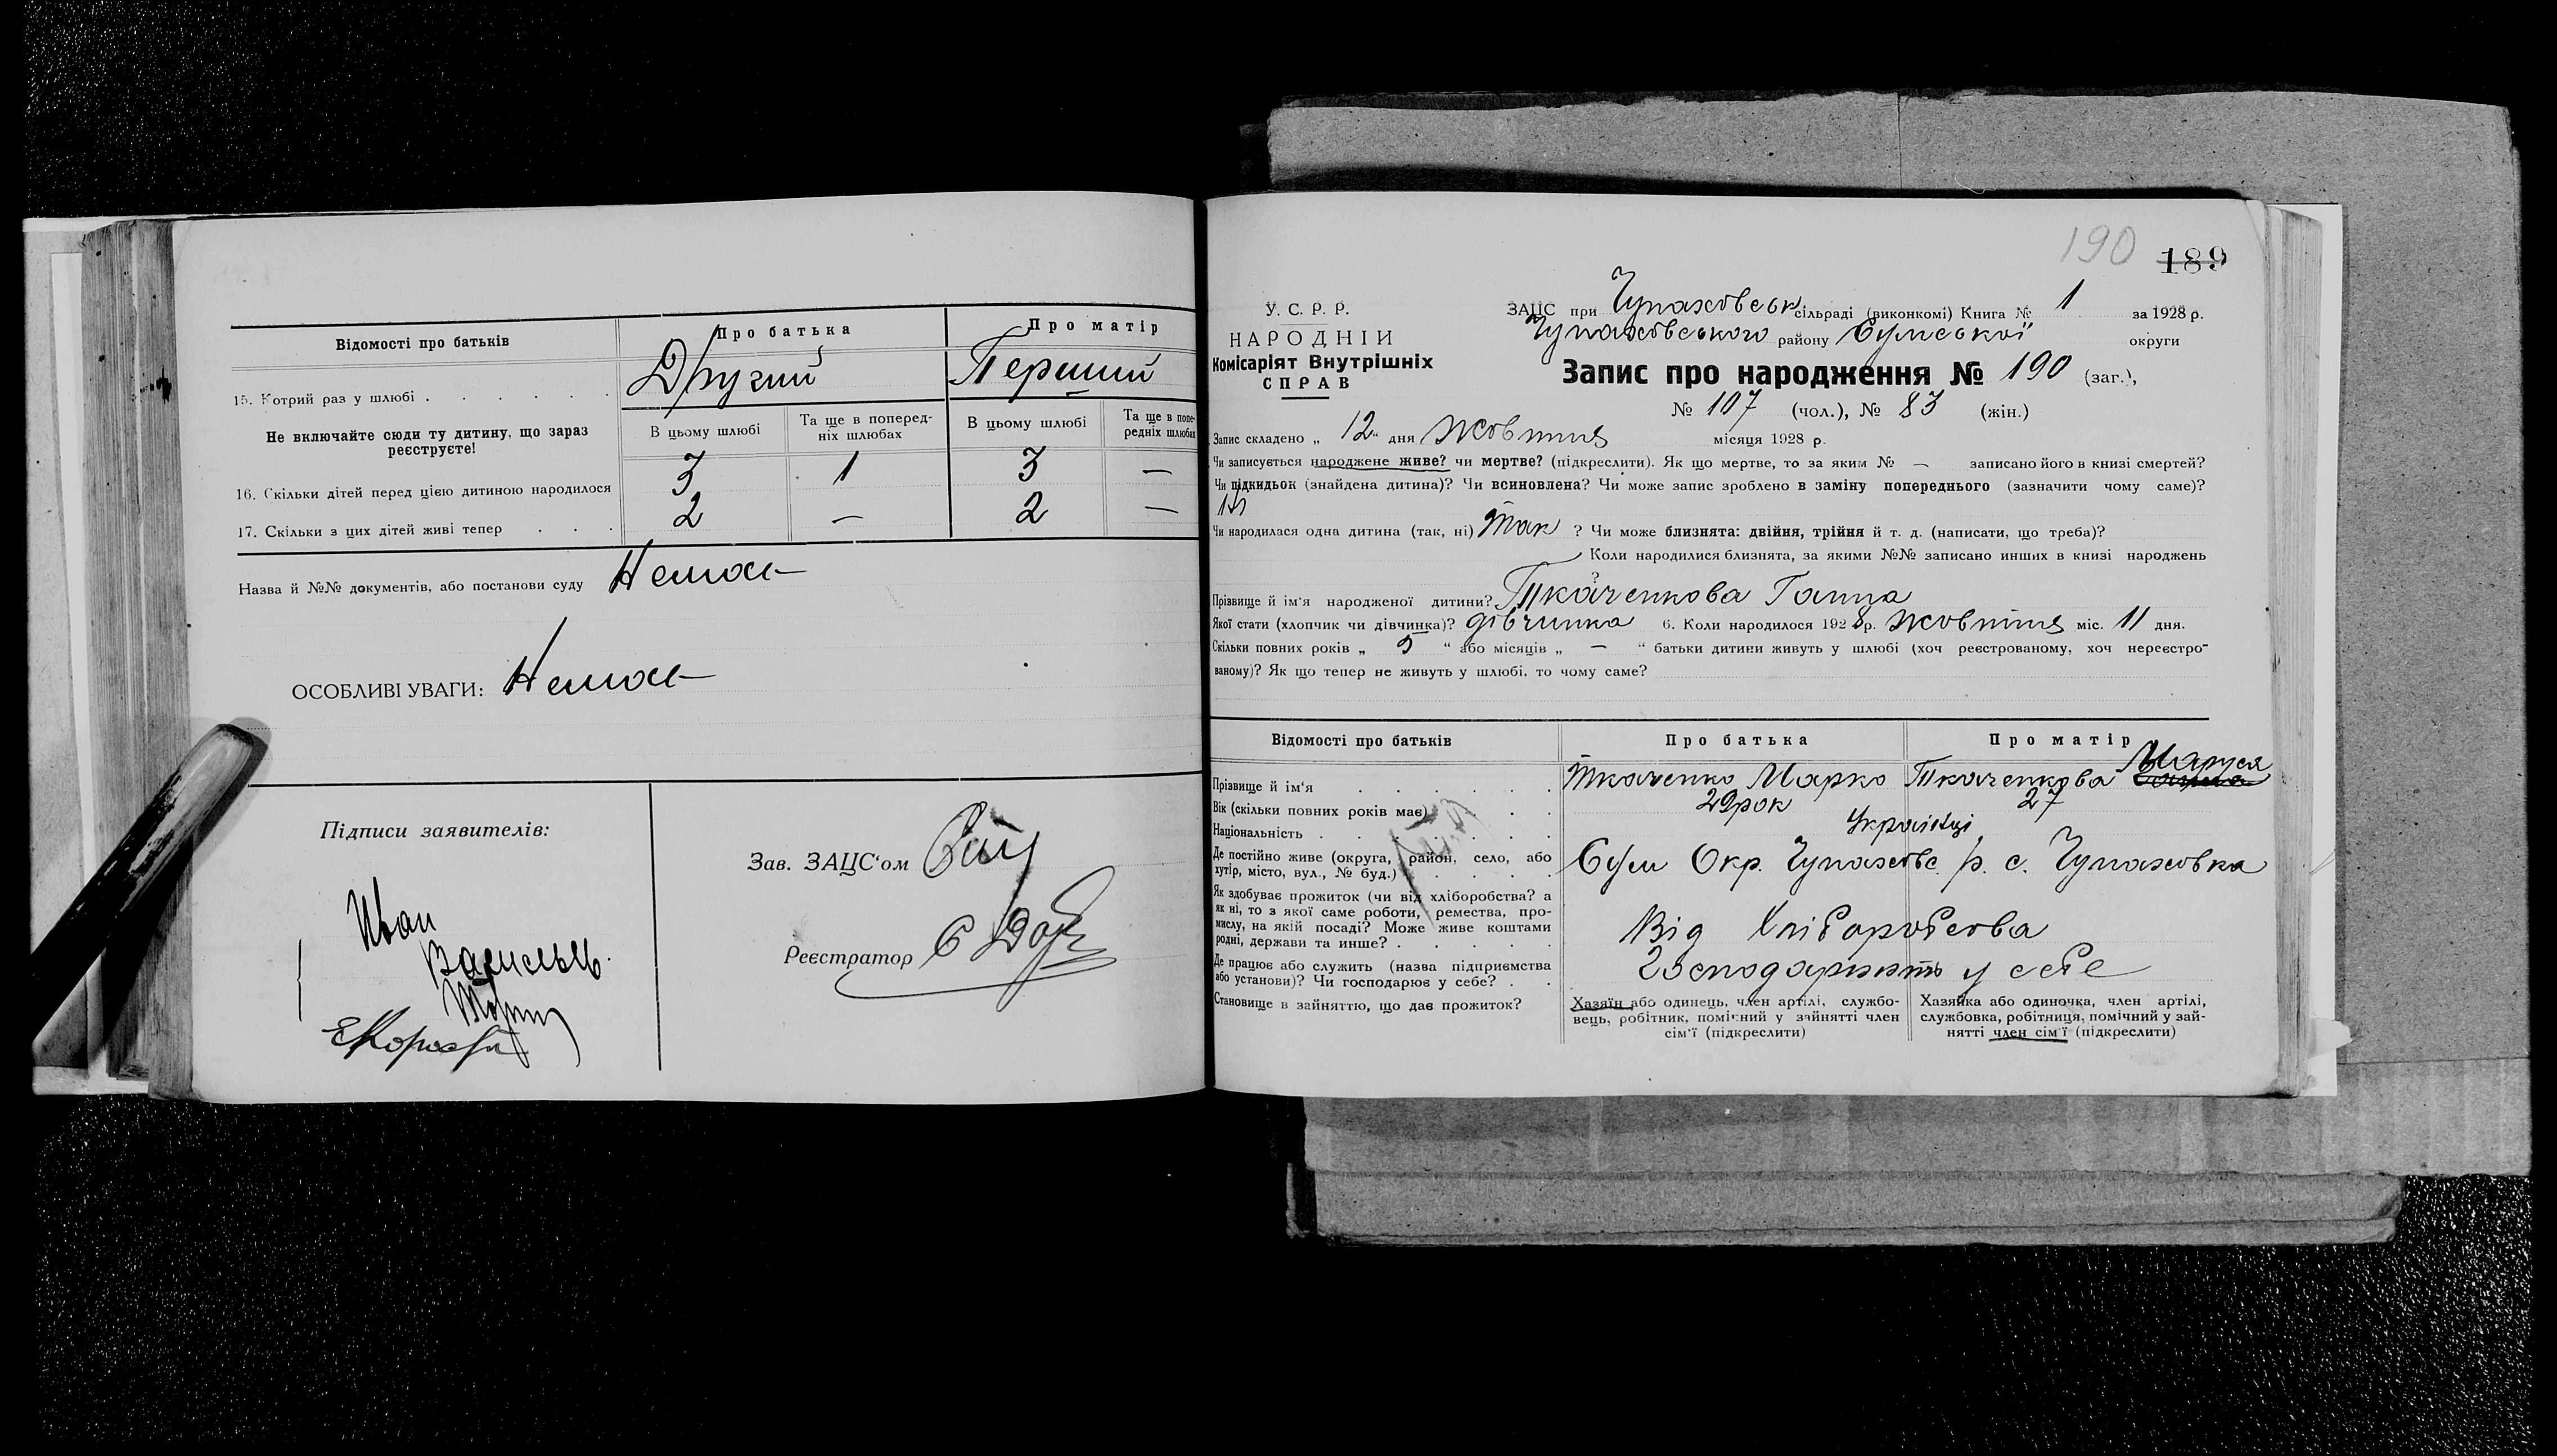 Відомості про батьків Про батька Про матір
15. Котрий раз у шлюбі . . . . . . Другий Перший
Не включайте сюди ту дитину, що зараз реєструєте!
В цьому шлюбі Та ще в поперед-
ніх шлюбах В цьому шлюбі Та ще в попе-
редніх шлюбах
16. Скільки дітей перед цією дитиною народилося 3 1 3 —
17. Скільки з цих дітей живі тепер . . . 2 — 2 —
Назва й №№ документів, або постанови суду Немає
ОСОБЛИВІ УВАГИ: Немає
Підписи заявителів:
Иван
Зав. ЗАЦС‘ом
Реєстратор
190 189
У. С. Р. Р.
НАРОДНІЙ
Комісаріят Внутрішніх
СПРАВ
ЗАЦС при Чупаховськ сільраді (виконкомі) Книга № 1 за 1928 р.
Чупаховського району Сумської округи
Запис про народження № 190 (заг.),
№ 107 (чол.), № 83 (жін.)
Запис складено „ 12 “ дня Жовтня місяця 1928 р.
Чи записується народжене живе? чи мертве? (підкреслити). Як що мертве, то за яким № — записано його в книзі смертей?
Чи підкидьок (знайдена дитина)? Чи всиновлена? Чи може запис зроблено в заміну попереднього (зазначити чому саме)?
Чи народилася одна дитина (так, ні) Так ? Чи може близнята: двійня, трійня й т. д. (написати, що треба)?
Коли народилися близнята, за якими №№ записано инших в книзі народжень
?
Прізвище й ім‘я народженої дитини? Ткаченкова Ганна
Якої стати (хлопчик чи дівчинка)? дівчинка 6. Коли народилося 1928 р. Жовтня міс. 11 дня.
Скільки повних років „ 5 “ або місяців „ — “ батьки дитини живуть у шлюбі (хоч реєстрованому, хоч нереєстро-
ваному)? Як що тепер не живуть у шлюбі, то чому саме?
Відомості про батьків Про батька Про матір
Прізвище й ім‘я . . . . . . Ткаченко Марко Ткаченкова Маруся
Вік (скільки повних років має) . . 29 рок 27
Національність . . . . . . . Українці
Де постійно живе (округа, район, село, або
хутір, місто, вул., № буд.) . . . . . Сум Окр. Чупахівс. р. с. Чупаховка
Як здобуває прожиток (чи від хліборобства? а
як ні, то з якої саме роботи, ремества, про-
мислу, на якій посаді? Може живе коштами
родні, держави та инше? . . . . . Від Хліборобства
Де працює або служить (назва підприємства
або установи)? Чи господарює у себе? . . Господарюють у себе
Становище в зайняттю, що дає прожиток?
Хазяїн або одинець, член артілі, службо-
вець, робітник, помічний у зайнятті член
сім‘ї (підкреслити)
Хазяйка або одиночка, член артілі,
службовка, робітниця, помічний у зай-
нятті член сім‘ї (підкреслити)